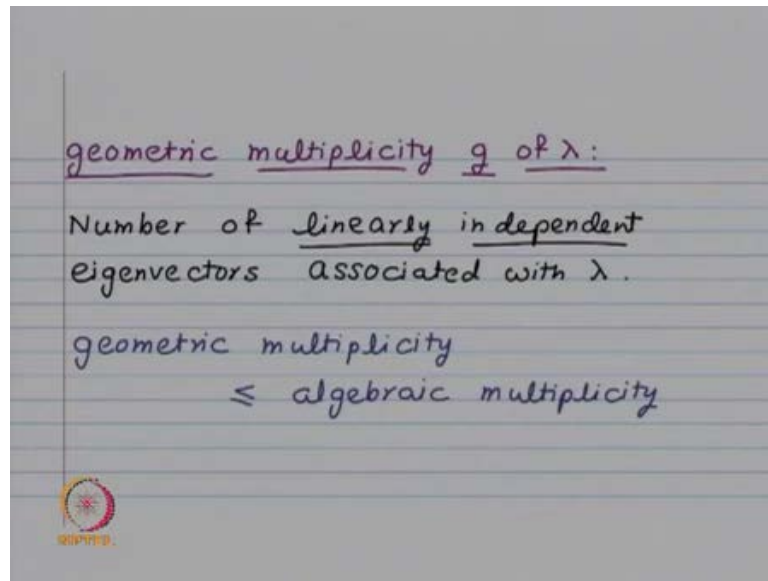 geometric multiplicity g of λ:
Number of linearly independent
eigenvectors associated with λ.
geometric multiplicity
≤ algebraic multiplicity